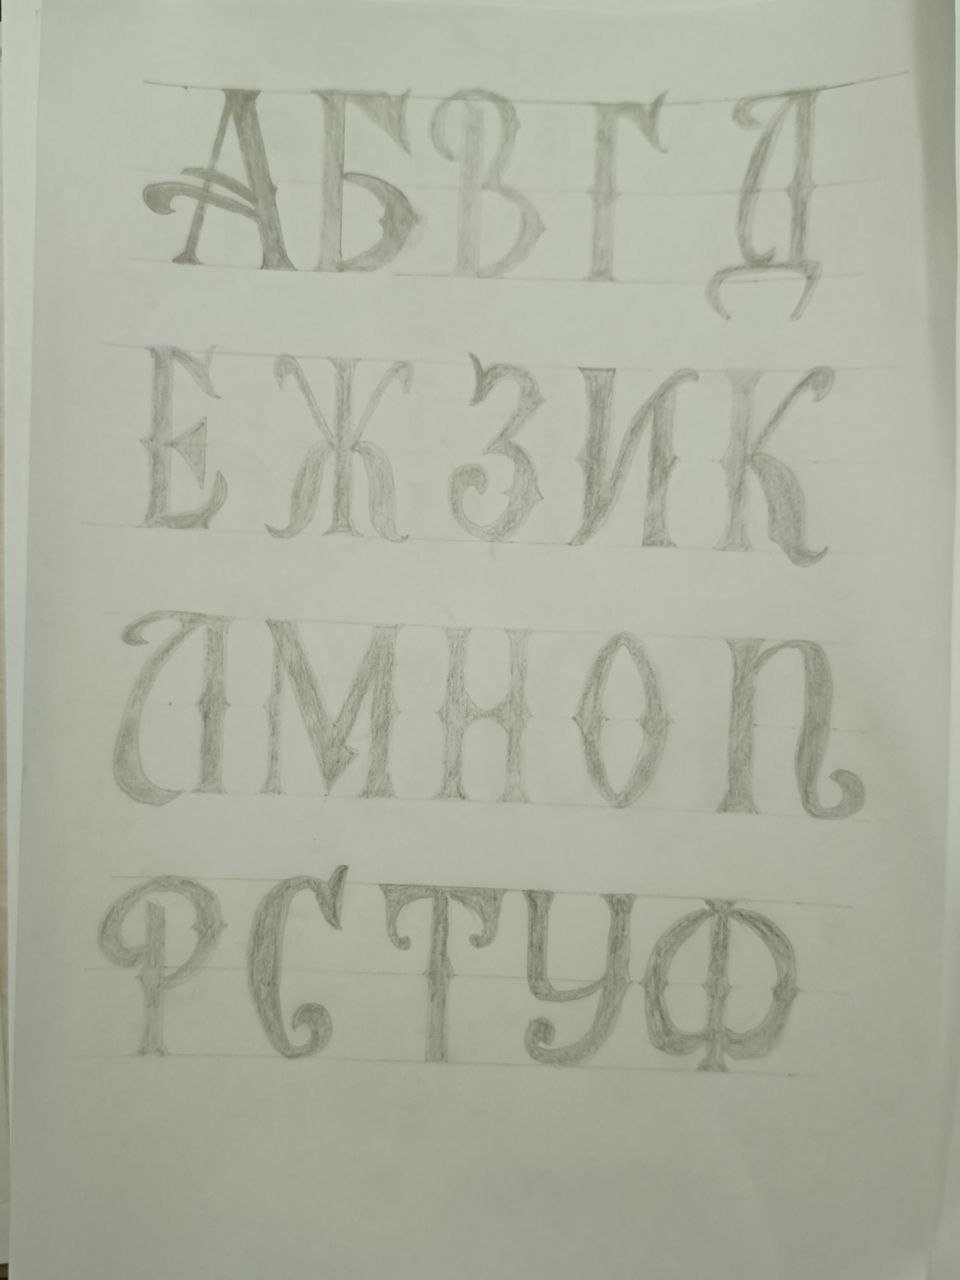 АБВГД
ЕЖЗИК
ЛМНОП
РСТУФ